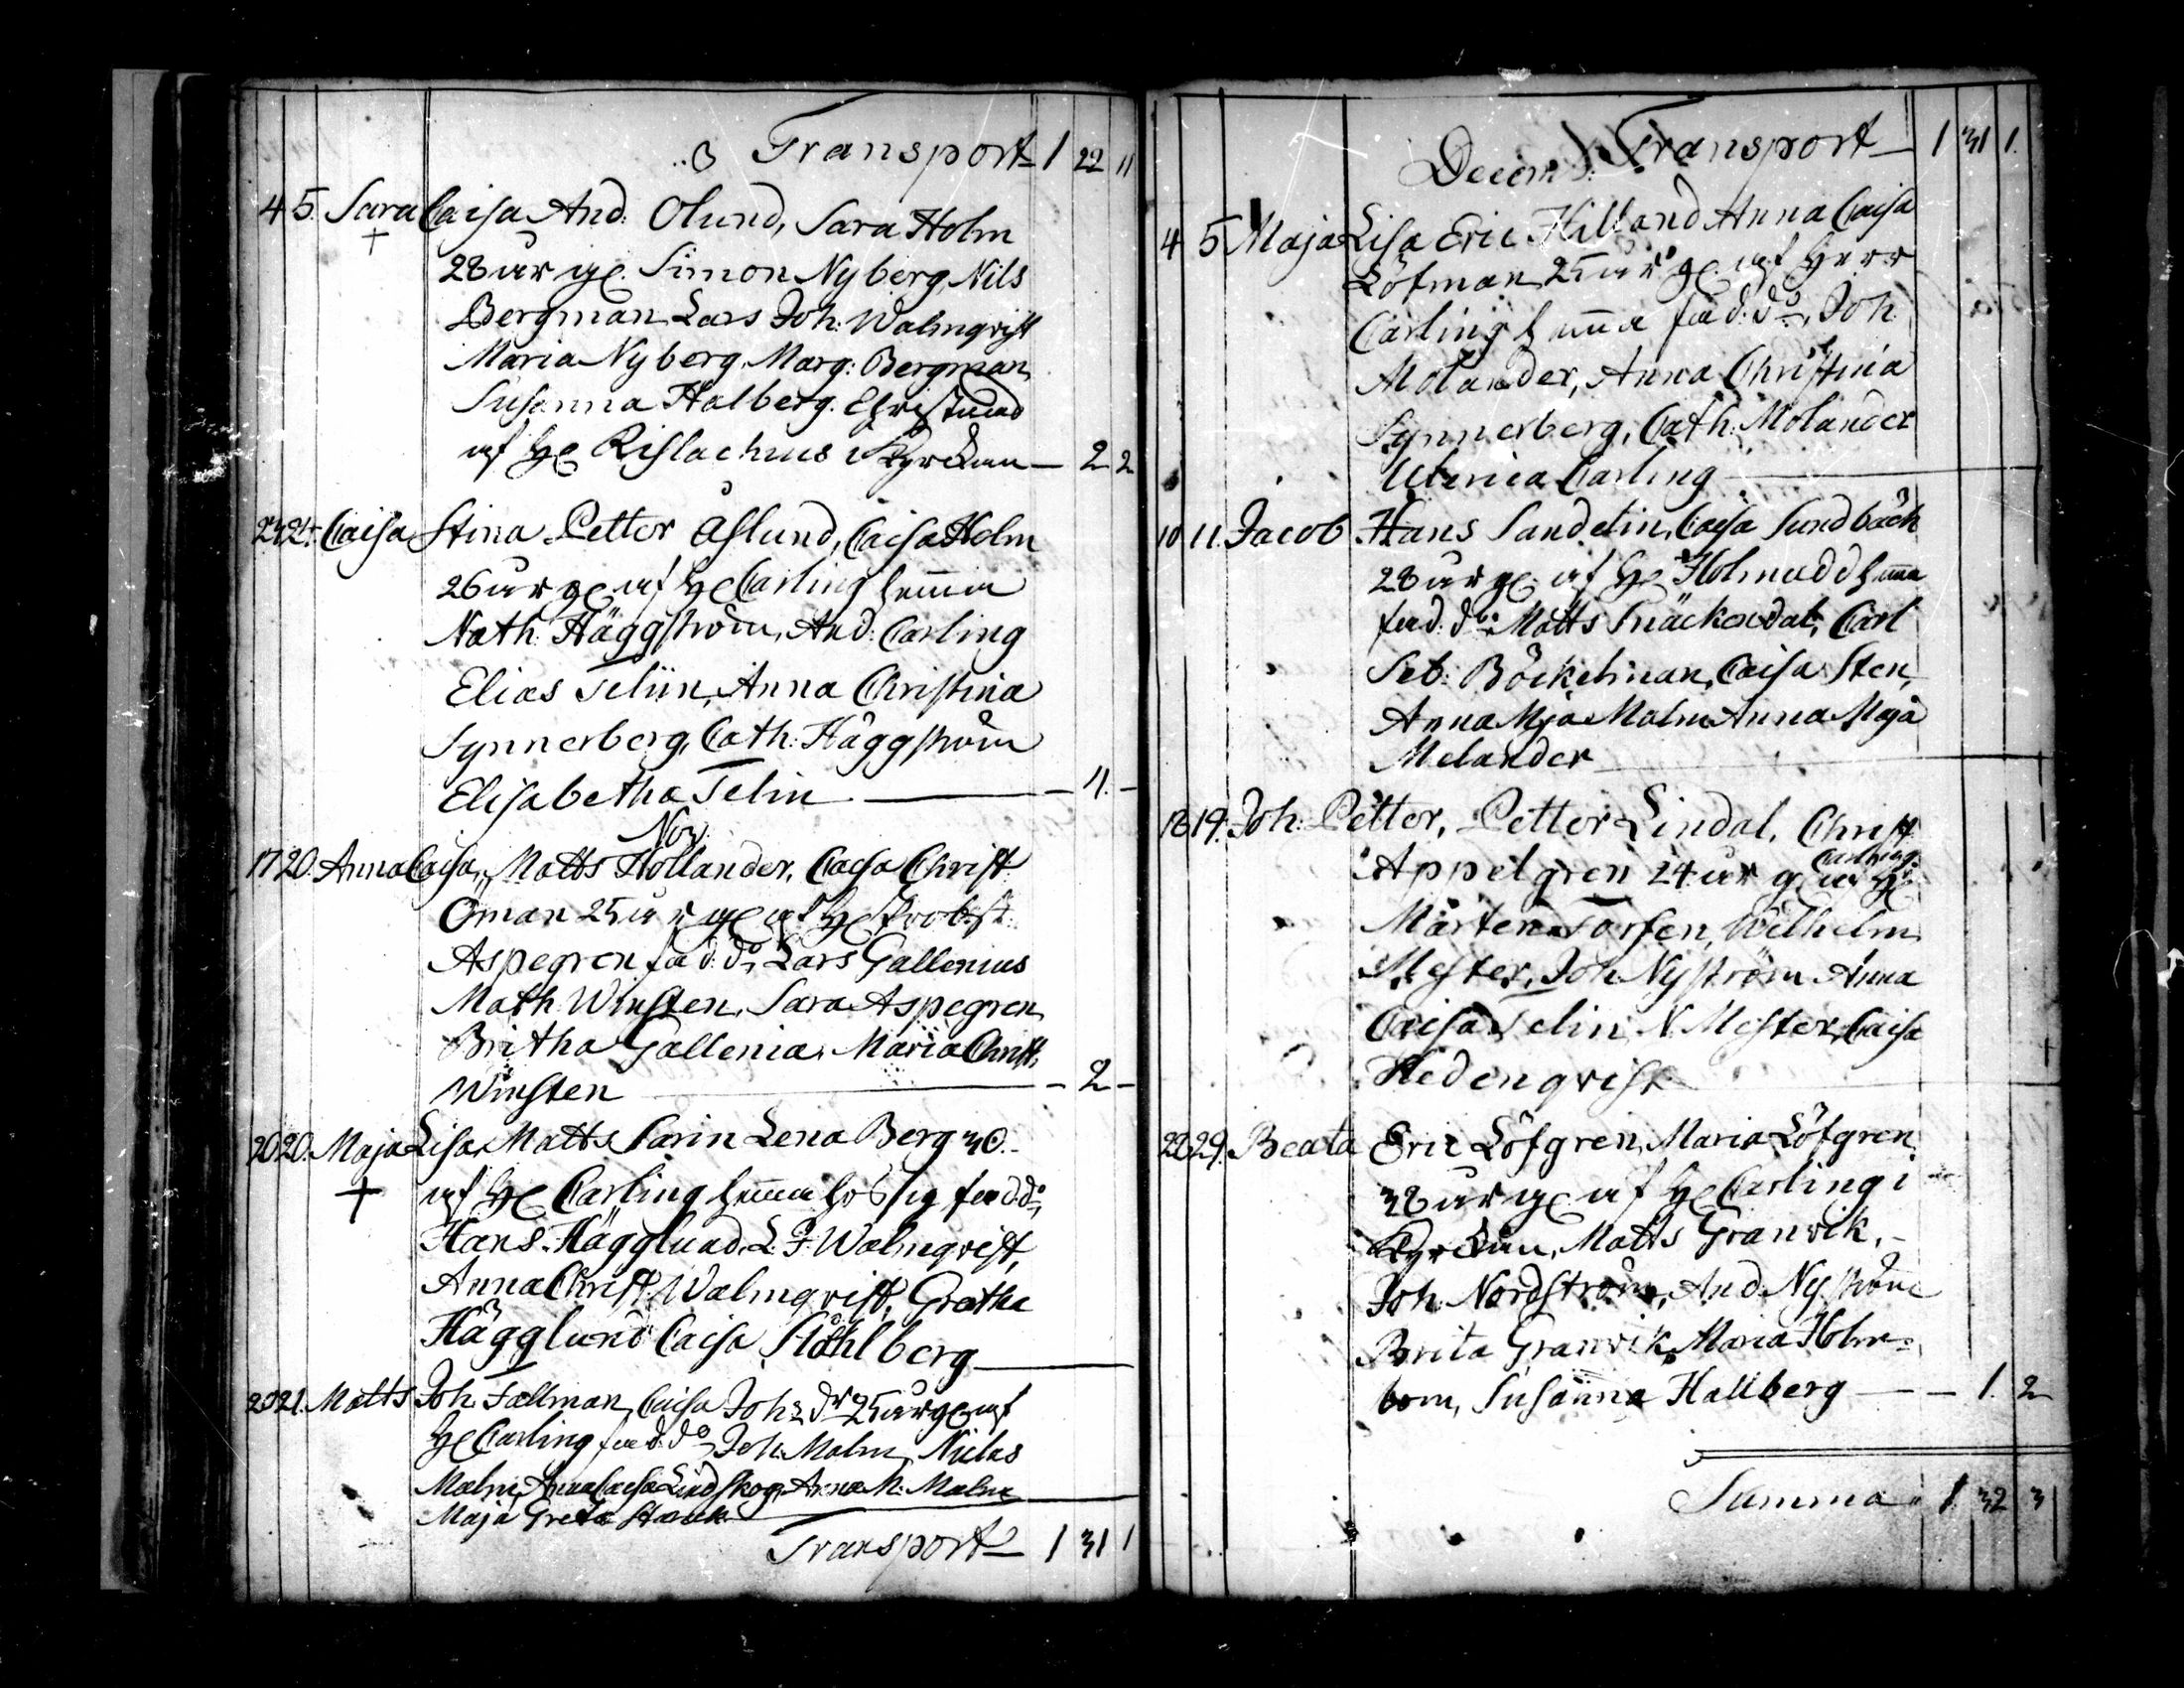 Transport 1 22 11
4 5. Sara Caisa And: Olund, Sara Holm
28 år ge. Simon Nyberg, Nils
Bergman Lars Joh: Walmqvist
Maria Nyberg, Marg: Bergman
Susanna Halberg. Christnad
af He Rislachius i Kyrckan — 2 2
24. Caisa Stina Petter Åslund, Caisa Holm
26 år ge af He Carling hemma
Nath: Häggström, And: Carling
Elias Telin, Anna Christina
Synnerberg, Cath: Häggström
Elisabetha Telin — 11. —
Nov:
17 20. Anna Caisa, Matts Hollander, Caisa Christ:
Öman 25 år ge af He Probst:
Aspegren fad: do, Lars Gallenius
Math Winsten, Sara Aspegren
Britha Gallenia, Maria Christ:
Winsten — 2 —
20 20. Maja Lisa, Matts Sarin Lena Berg 30.
af He Carling hemma hos sig fad: do:
Hans Hägglund, L. J: Walmqvist,
Anna Christ: Walmqvist, Gretha
Hägglund Caisa Ståhlberg —
20 21. Matts Joh. Fallman, Caisa Johs dr 25 år ge af
He Carling fad: do, Joh. Malm, Niclas
Malm, Anna Caisa Lindskog, Anna M: Malm
Maja Greta
Transport 1 31 1
Decem: Transport 1 31 1.
4 5 Maja Lisa Eric Hilland Anna Caisa
Löfman 25 år ge. af Herr
Carling hemma fad: do, Joh
Molander, Anna Christina
Synnerberg, Cath: Molander
Ulrica Carling —
10 11. Jacob Hans Sandelin, Caisa Sundbäck
28 år ge. af He Holmudd hemma
fad: do: Matts Snäckendal, Carl
Seb: Böckelman, Caisa Sten,
Anna Mja Malm Anna Maja
Melander —
18 19. Joh: Petter, Petter Lindal, Christ
Appelgren 24 år ge af He Carling
Mårten Torsen, Wilhelm
Mester, Joh Nyström Anna
Caisa Telin N. Mester, Caisa
Hedenqvist
28 29. Beata Eric Löfgren, Maria Löfgren
38 år ge af He Carling i
Kyrckan, Matts Granvik, —
Joh. Nordström, And: Nyström
Brita Granvik, Maria Holm=
bom, Susanna Hallberg — — 1. 2
Summa 1 32 3